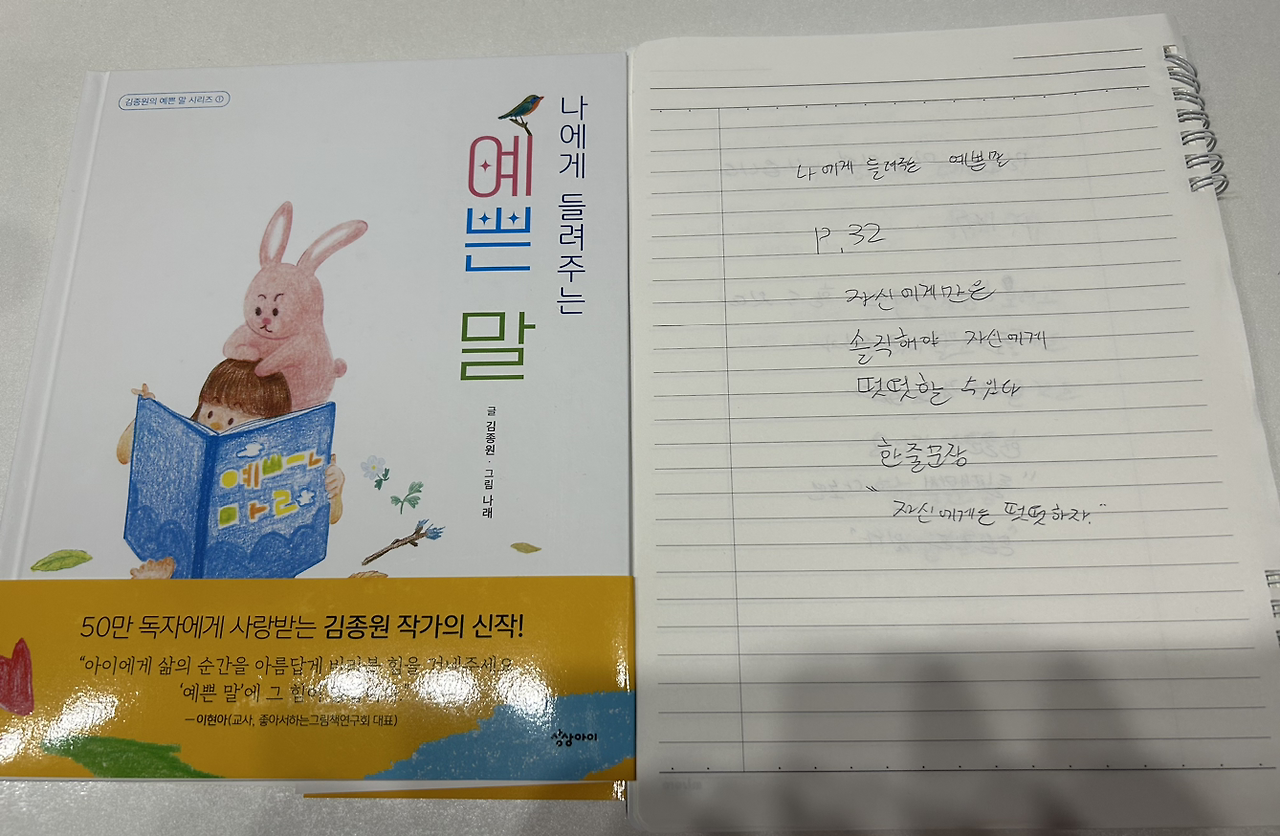 김종원의 예쁜 말 시리즈 ①
나에게 들려주는
예쁜 말
글 김종원 · 그림 나래
예쁘ㄴ
마ㄹ
50만 독자에게 사랑받는 김종원 작가의 신작!
“아이에게 삶의 순간을 아름답게 바라볼 힘을 건네주세요.
‘예쁜 말’에 그 힘이
—이현아(교사, 좋아서하는그림책연구회 대표)
상상아이
나에게 들려주는 예쁜말
P.32
자신에게만은
솔직해야 자신에게
떳떳할 수 있다
한줄문장
"자신에게는 떳떳하자."